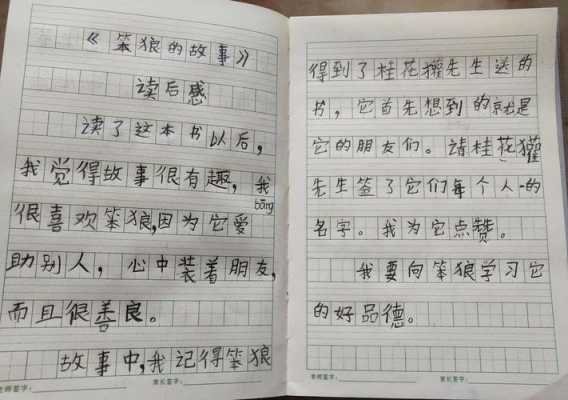 《笨狼的故事》
读后感
读了这本书以后，
我觉得故事很有趣，我
bāng
很喜欢笨狼，因为它爱
助别人，心中装着朋友，
而且很善良。
故事中，我记得笨狼
老师签字：
家长签字：
得到了桂花獾先生送的
书，它首先想到的就是
它的朋友们。请桂花獾
先生签了它们每个人的
名字。我为它点赞。
我要向笨狼学习它
的好品德。
老师签字：
家长签字：